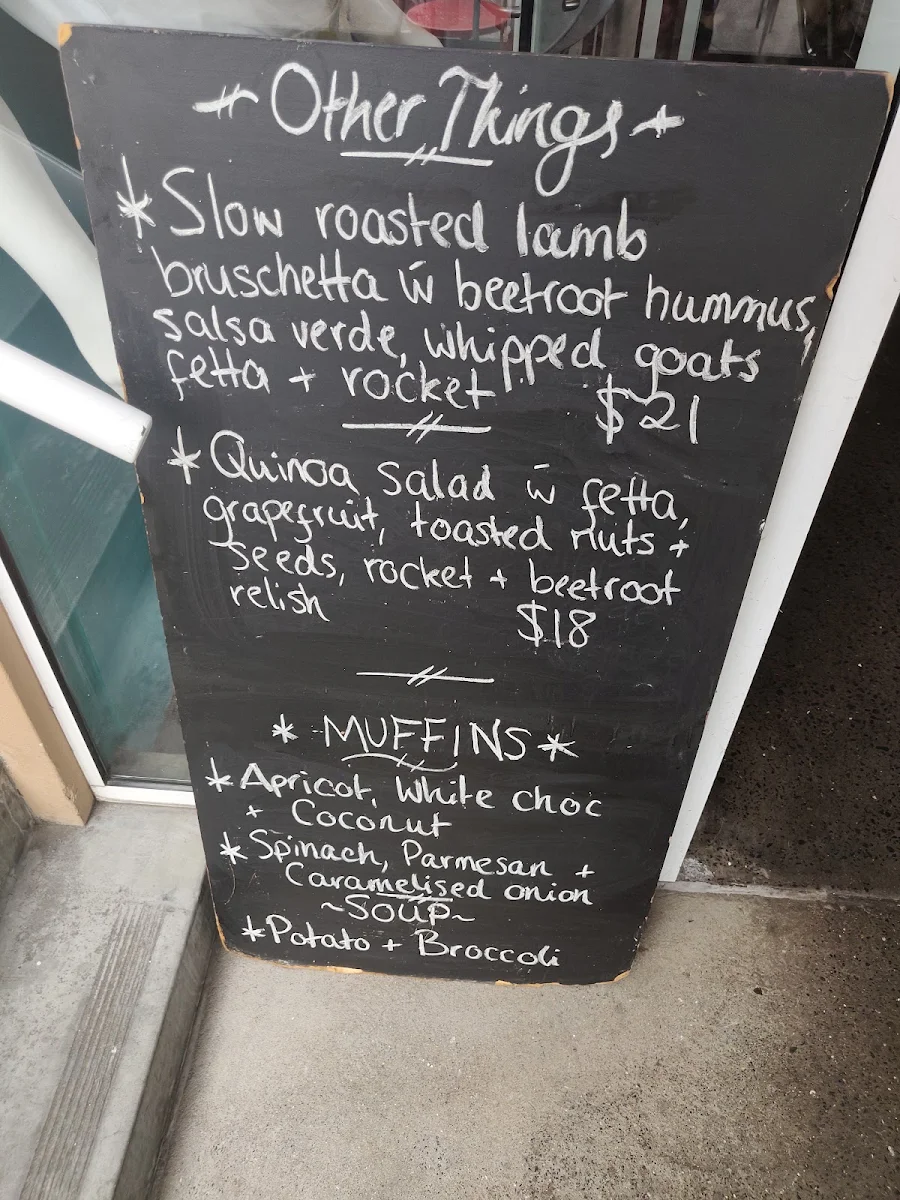 Other Things
* Slow roasted lamb
bruschetta w̄ beetroot hummus,
salsa verde, whipped goats
fetta + rocket $21
* Quinoa Salad w̄ fetta,
grapefruit, toasted nuts +
seeds, rocket + beetroot
relish $18
* MUFFINS *
* Apricot, White choc
+ Coconut
* Spinach, Parmesan +
Caramelised onion
~SOUP~
* Potato + Broccoli